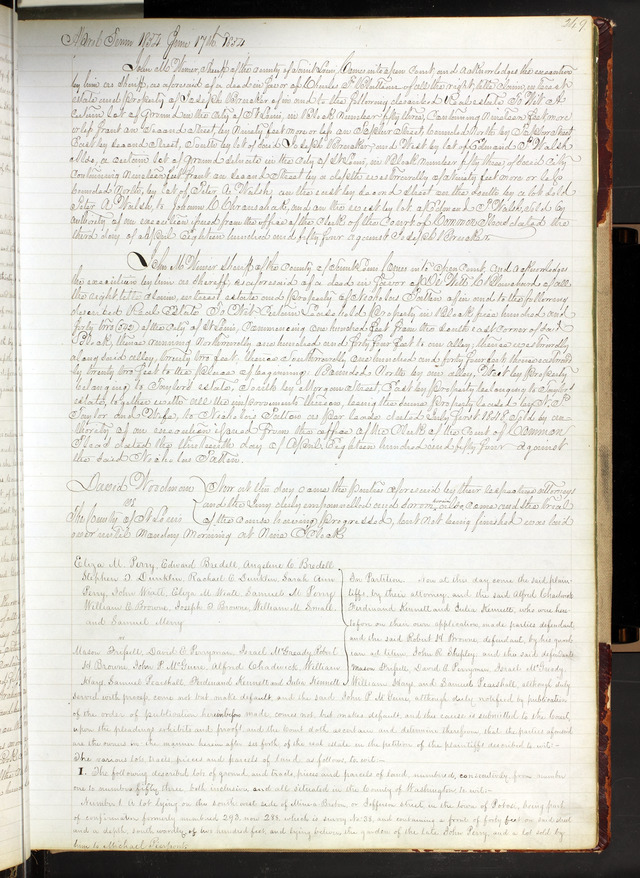 249
April Term 1854 June 17th 1854
John M Wimer, Sheriff of the county of Saint Louis, Comes into open Court, and acknowledges the execution
by him as Sheriff as aforesaid of a deed in favor of Charles F. of all the right, title, claim, interest
estate and property of Joseph Brucker of in and to the following described Real estate To Wit A
Certain lot of Ground in the City of St Louis, in Block number fifty three, Containing nineteen feet more
or less front on Second Street, by Ninety feet more or less on Street bounded North by Street
East by Second Street, South by lot of said Joseph and West by lot of Edward J Walsh
Also, a certain lot of Ground situate in the City of St Louis, in Block number fifty three of said City
Containing nineteen feet front on Second Street by a depth westwardly of ninety feet more or less
bounded North, by lot of Peter A Walsh, on the east by Second Street on the South by a lot sold
Peter A Walsh, to Johann and on the west by lot of Edward J Walsh, sold by
authority of an execution issued from the office of the Clerk of the Court of Common Pleas dated the
third day of April Eighteen hundred and fifty four against Joseph Brucker
John M Wimer Sheriff of the County of Saint Louis Comes into open Court, and acknowledges
the execution by him as Sheriff as aforesaid of a deed in favor of De Witt C Blanchard of all
the right title claim, interest estate and property of Nicholas of in and to the following
described Real Estate To Wit Certain Leasehold Property in Block five hundred and
forty two (542) of the City of St Louis, Commencing one hundred feet from the South east corner of said
Block, thence running Northwardly one hundred and forty four feet to an alley; thence westwardly
along said alley, twenty two feet, thence Southwardly one hundred and forty four feet thence eastwardly
by twenty two feet to the place of beginning. Bounded North by an alley, West by property
belonging to Taylors estate, South by Morgan Street East by property belonging to Taylors
estate, together with all the improvements thereon, being the same property leased by N. P.
Taylor and Wife, to Nicholas as per lease dated July first 1848 Sold by au-
thority of an execution issued from the office of the Clerk of the Court of Common
Pleas dated the thirteenth day of April Eighteen hundred and fifty four against
the said Nicholas
David Woodman Now at this day came the parties aforesaid by their respective attorneys
vs and the Jury duly empannelled and sworn, also came and the trial
The County of St Louis of the cause having progressed, but not being finished was laid
over until Monday Morning at Nine O'Clock
Eliza M. Perry, Edward Bredell Angeline C Bredell
Stephen D Dunklin, Rachael E. Dunklin, Sarah Ann In Partition. Now at this day come the said plain-
Perry, John Wiatt, Eliza M. Wiatt, Samuel M. Perry tiffs, by their attorney, and the said Alfred Chadwick
William A Browne, Joseph I Browne, William M Small Ferdinand Kennett and Julia Kennett, who were here
and Samuel Merry tofore on their own application, made parties defendant
vs and the said Robert H. Browne, defendant, by his guard
Mason Frissell, David E. Perryman, Israel McGready Robert ian ad litem, John R Shepley; and the said defendants
H. Browne, John P. McGuire, Alfred Chadwick, William Mason Frissell, David E Perryman, Israel McGready,
Hays, Samuel Pearshall, Ferdinand Kennett and Julia Kennett William Hays and Samuel Pearshall, although duly
served with process come not but make default, and the said John P. McGuire, although duly notified by publication
of the order of publication hereinbefore made comes not, but makes default, and this cause is submitted to the Court
upon the pleadings exhibits and proof, and the Court doth ascertain and determine therefrom that the parties aforesaid
are the owners in the manner herein after set forth of the real estate in the petition of the plaintiffs described to wit:-
The various lots tracts pieces and parcels of land as follows, to wit:-
1. The following described lots of ground and tracts pieces and parcels of land, numbered, consecutively, from number
one to number fifty three, both inclusive and all situated in the County of Washington to wit:-
Number 1 A lot lying on the south west side of Mine a Breton or Jefferson street in the town of Potosi, being part
of confirmation formerly numbered 293, now 288, which is survey No 38, and containing a front of forty feet on said street
and a depth, south westerly, of two hundred feet, and lying between the garden of the late John Perry, and a lot sold by
him to Michael